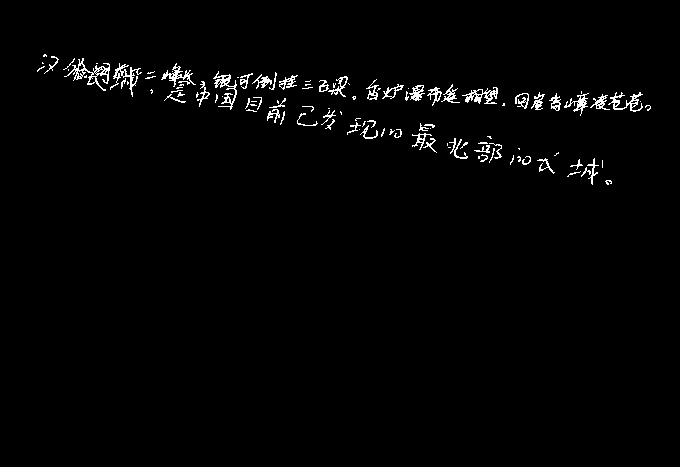 二峰长，银河倒挂三石梁。香炉瀑布遥相望，回崖沓嶂凌苍苍。
汉，是中国目前已发现的最北部的城。